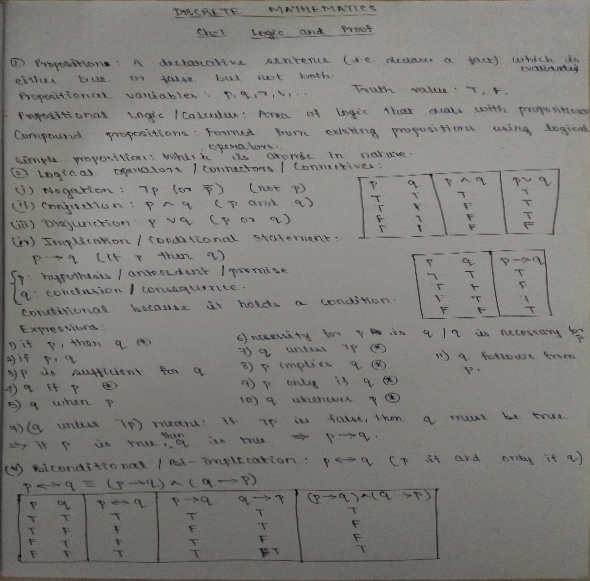 DISCRETE MATHEMATICS
Ch:1 Logic and Proof
① Propositions: A declarative sentence (i.e declares a fact) which is
either true or false but not both. (evaluated)
Propositional variables: p, q, r, s, .. Truth value: T, F.
Propositional Logic / Calculus: Area of logic that deals with propositions
Compound propositions: Formed from existing propositions using logical
operators.
Simple proposition: Which is atomic in nature.
② Logical operators / Connectors / Connectives:
(i) Negation: ⌉p (or p̅) (not p)
(ii) Conjunction: p ∧ q (p and q)
(iii) Disjunction: p ∨ q (p or q)
p q p ∧ q p ∨ q
T T T T
T F F T
F T F T
F F F F
(iv) Implication / conditional statement:
p → q (If p then q)
{ p: hypothesis / antecedent / premise
q: conclusion / consequence.
Conditional because it holds a condition.
p q p → q
T T T
T F F
F T T
F F T
Expressions:
1) if p, then q ⊛
2) if p, q
3) p is sufficient for q
4) q if p ⊛
5) q when p
6) necessity for p is q / q is necessary for p.
7) q unless ⌉p ⊛
8) p implies q ⊛
9) p only if q ⊛
10) q whenever p ⊛
11) q follows from
p.
(q unless ⌉p) means: if ⌉p is false, then q must be true
⇒ if p is true then q is true ⇒ p → q.
(v) Biconditional / Bi-implication: p ↔ q (p if and only if q)
p ↔ q ≡ (p → q) ∧ (q → p)
p q p ↔ q p → q q → p (p → q) ∧ (q → p)
T T T T T T
T F F F T F
F T F T F F
F F T T T T